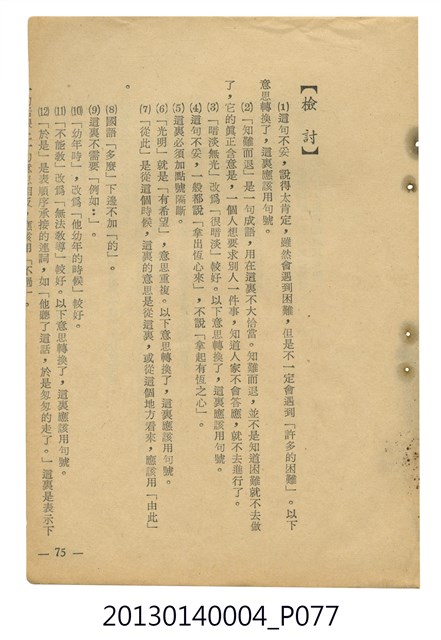 【檢討】
⑴這句不妥，說得太肯定，雖然會遇到困難，但是不一定會遇到「許多的困難」。以下
意思轉換了，這裏應該用句號。
⑵「知難而退」是一句成語，用在這裏不大恰當。知難而退，並不是知道困難就不去做
了，它的眞正含意是，一個人想要求別人一件事，知道人家不會答應，就不去進行了。
⑶「暗淡無光」改爲「很暗淡」較好。以下意思轉換了，這裏應該用句號。
⑷這句不妥，一般都說「拿出恆心來」，不說「拿起有恆之心」。
⑸這裏必須加點號隔斷。
⑹「光明」就是「有希望」，意思重複。以下意思轉換了，這裏應該用句號。
⑺「從此」是從這個時候，這裏的意思是從這裏，或從這個地方看來，應該用「由此」
。
⑻國語「多麼」下邊不加「的」。
⑼這裏不需要「例如：」。
⑽「幼年時」，改爲「他幼年的時候」較好。
⑾「不能敎」改爲「無法敎導」較好。以下意思轉換了，這裏應該用句號。
⑿「於是」是表順序承接的連詞，如「他聽了這話，於是匆匆的走了。」這裏是表示下
— 75 —
20130140004_P077